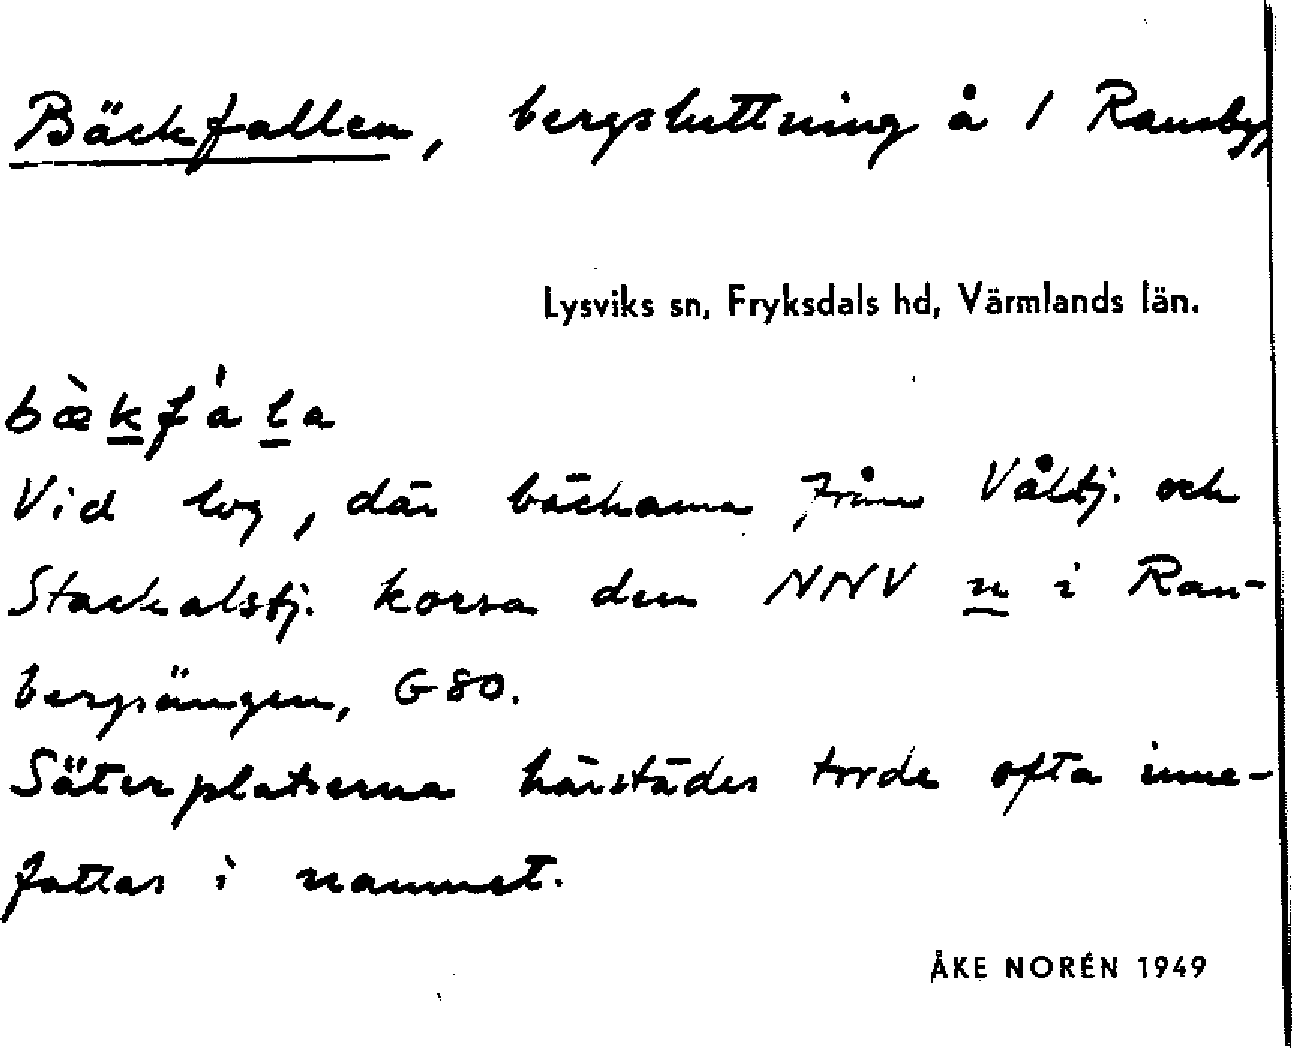 Bäckfallen, bergsluttning å 1 Ransby,
Lysviks sn, Fryksdals hd, Värmlands län.
bæ̀kfa̍la
Vid log, där bäckarna från Våltj. och
Stackalstj. korsa den NNV n i Ran-
bergsängen, G 80.
Säterplatserna härstädes torde ofta inne-
fattas i namnet.
ÅKE NORÉN 1949